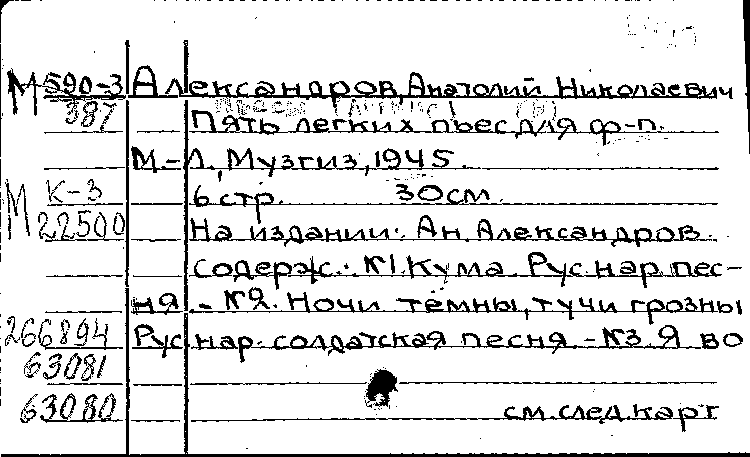 М 590-3 Александров, Анатолий Николаевич
387 Пять легких пьес для ф-п.
М-Л., Музгиз, 1945.
М К-3 6 стр. 30см.
22500 На издании: Ан. Александров.
Содерж.: №1. Кума. Рус. нар. пес-
ня. - №2. Ночи тёмны, тучи грозны
266894 Рус. нар. солдатская песня. - №3. Я во
63081
63080 см. след. карт